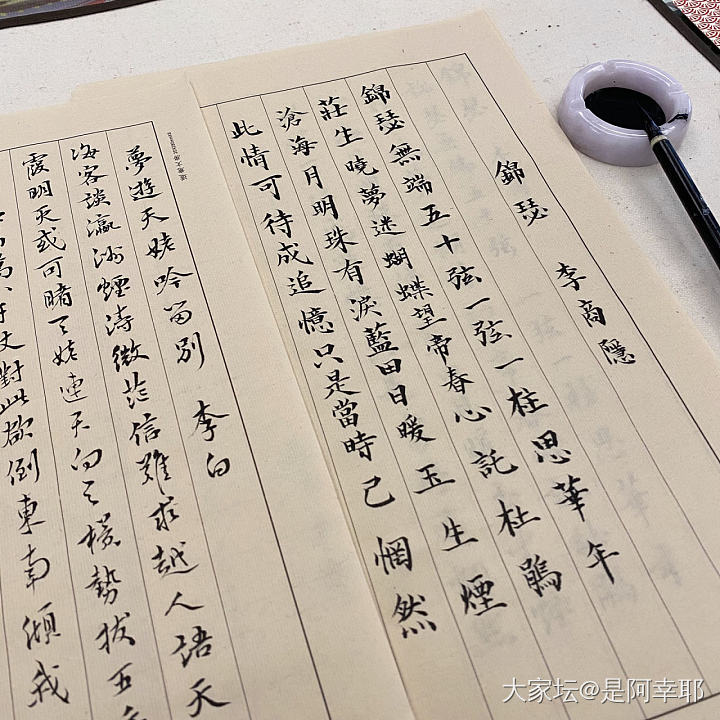 錦瑟 李商隱
錦瑟無端五十弦一弦一柱思華年
莊生曉夢迷蝴蝶望帝春心託杜鵑
滄海月明珠有淚藍田日暖玉生煙
此情可待成追憶只是當時已惘然
夢遊天姥吟留別 李白
海客談瀛洲煙濤微茫信難求越人語天
霞明灭或可睹天姥連天向天橫勢拔五
萬八千丈對此欲倒東南傾我
大家坛@是阿幸耶